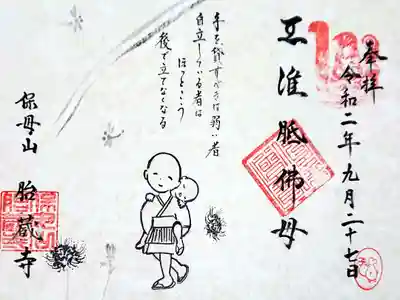 奉拝
令和二年九月二十七日
准胝佛母
手を貸すべきは弱い者
自立している者は
ほっとこう
後で立てなくなる
保母山
胎蔵寺